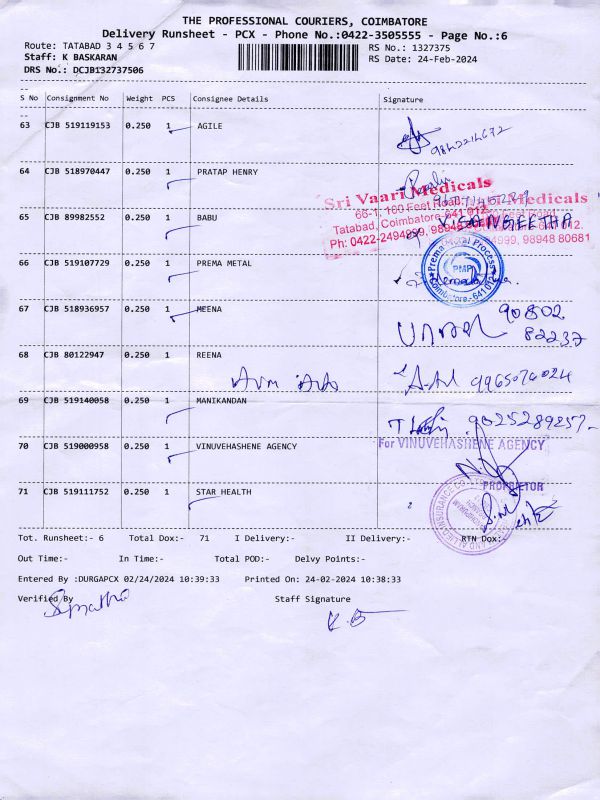 THE PROFESSIONAL COURIERS, COIMBATORE
Delivery Runsheet - PCX - Phone No.:0422-3505555 - Page No.:6
Route: TATABAD 3 4 5 6 7 RS No.: 1327375
Staff: K BASKARAN RS Date: 24-Feb-2024
DRS No.: DCJB132737506
S No Consignment No Weight PCS Consignee Details Signature
63 CJB 519119153 0.250 1 AGILE
64 CJB 518970447 0.250 1 PRATAP HENRY
Sri Vaari Medicals
66-1, 100 Feet Road,
Tatabad, Coimbatore-641 012.
Ph: 0422-2494999, 98948 80681
65 CJB 89982552 0.250 1 BABU
SANGEETHA
66 CJB 519107729 0.250 1 PREMA METAL
Prema Metal Process
PMP
Coimbatore-641 012.
67 CJB 518936957 0.250 1 MEENA
90802
82237
68 CJB 80122947 0.250 1 REENA
9965076024
69 CJB 519140058 0.250 1 MANIKANDAN
9025289257
70 CJB 519000958 0.250 1 VINUVEHASHENE AGENCY
For VINUVEHASHENE AGENCY
PROPRIETOR
71 CJB 519111752 0.250 1 STAR HEALTH
Tot. Runsheet:- 6 Total Dox:- 71 I Delivery:- II Delivery:- RTN Dox:-
Out Time:- In Time:- Total POD:- Delvy Points:-
Entered By :DURGAPCX 02/24/2024 10:39:33 Printed On: 24-02-2024 10:38:33
Verified By Staff Signature